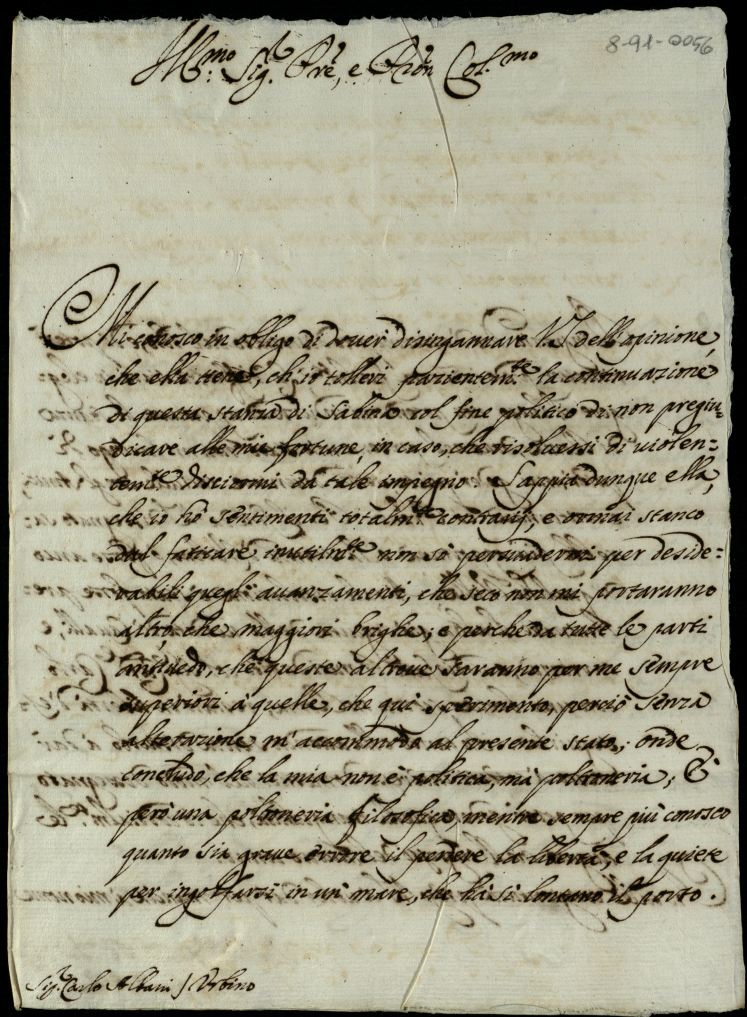 8-91-0056
Ill.mo Sig.r Prē, e Prōn Col.mo
Mi conosco in obligo di dover disingannare V.S. dell'opinione,
che ella tiene, ch'io tolleri pazientem.te la continuazione
di questa stanza di Sabina col fine politico di non pregiu=
dicare alle mie fortune, in caso, che risolvessi di violen=
tem.te disciormi da tale impegno: Sappia dunque ella,
che io hò sentimenti totalm.te contrarij, e ormai stanco
dal faticare inutilm.te non sò persuadermi per deside=
rabili quegl'avanzamenti, che seco non mi portaranno
altro, che maggiori brighe; e perche da tutte le parti
antivedo, che queste altrove saranno per me sempre
superiori à quelle, che quì sperimento, perciò senza
alterazione m'accommodo al presente stato; onde
concludo, che la mia non è politica, mà poltroneria; È
però una poltroneria filosofica, mentre sempre più conosco
quanto sia grave errore il perdere la libertà, e la quiete
per ingolfarsi in un mare, che hà sì lontano il porto.
Sig.r Carlo Albani / Urbino